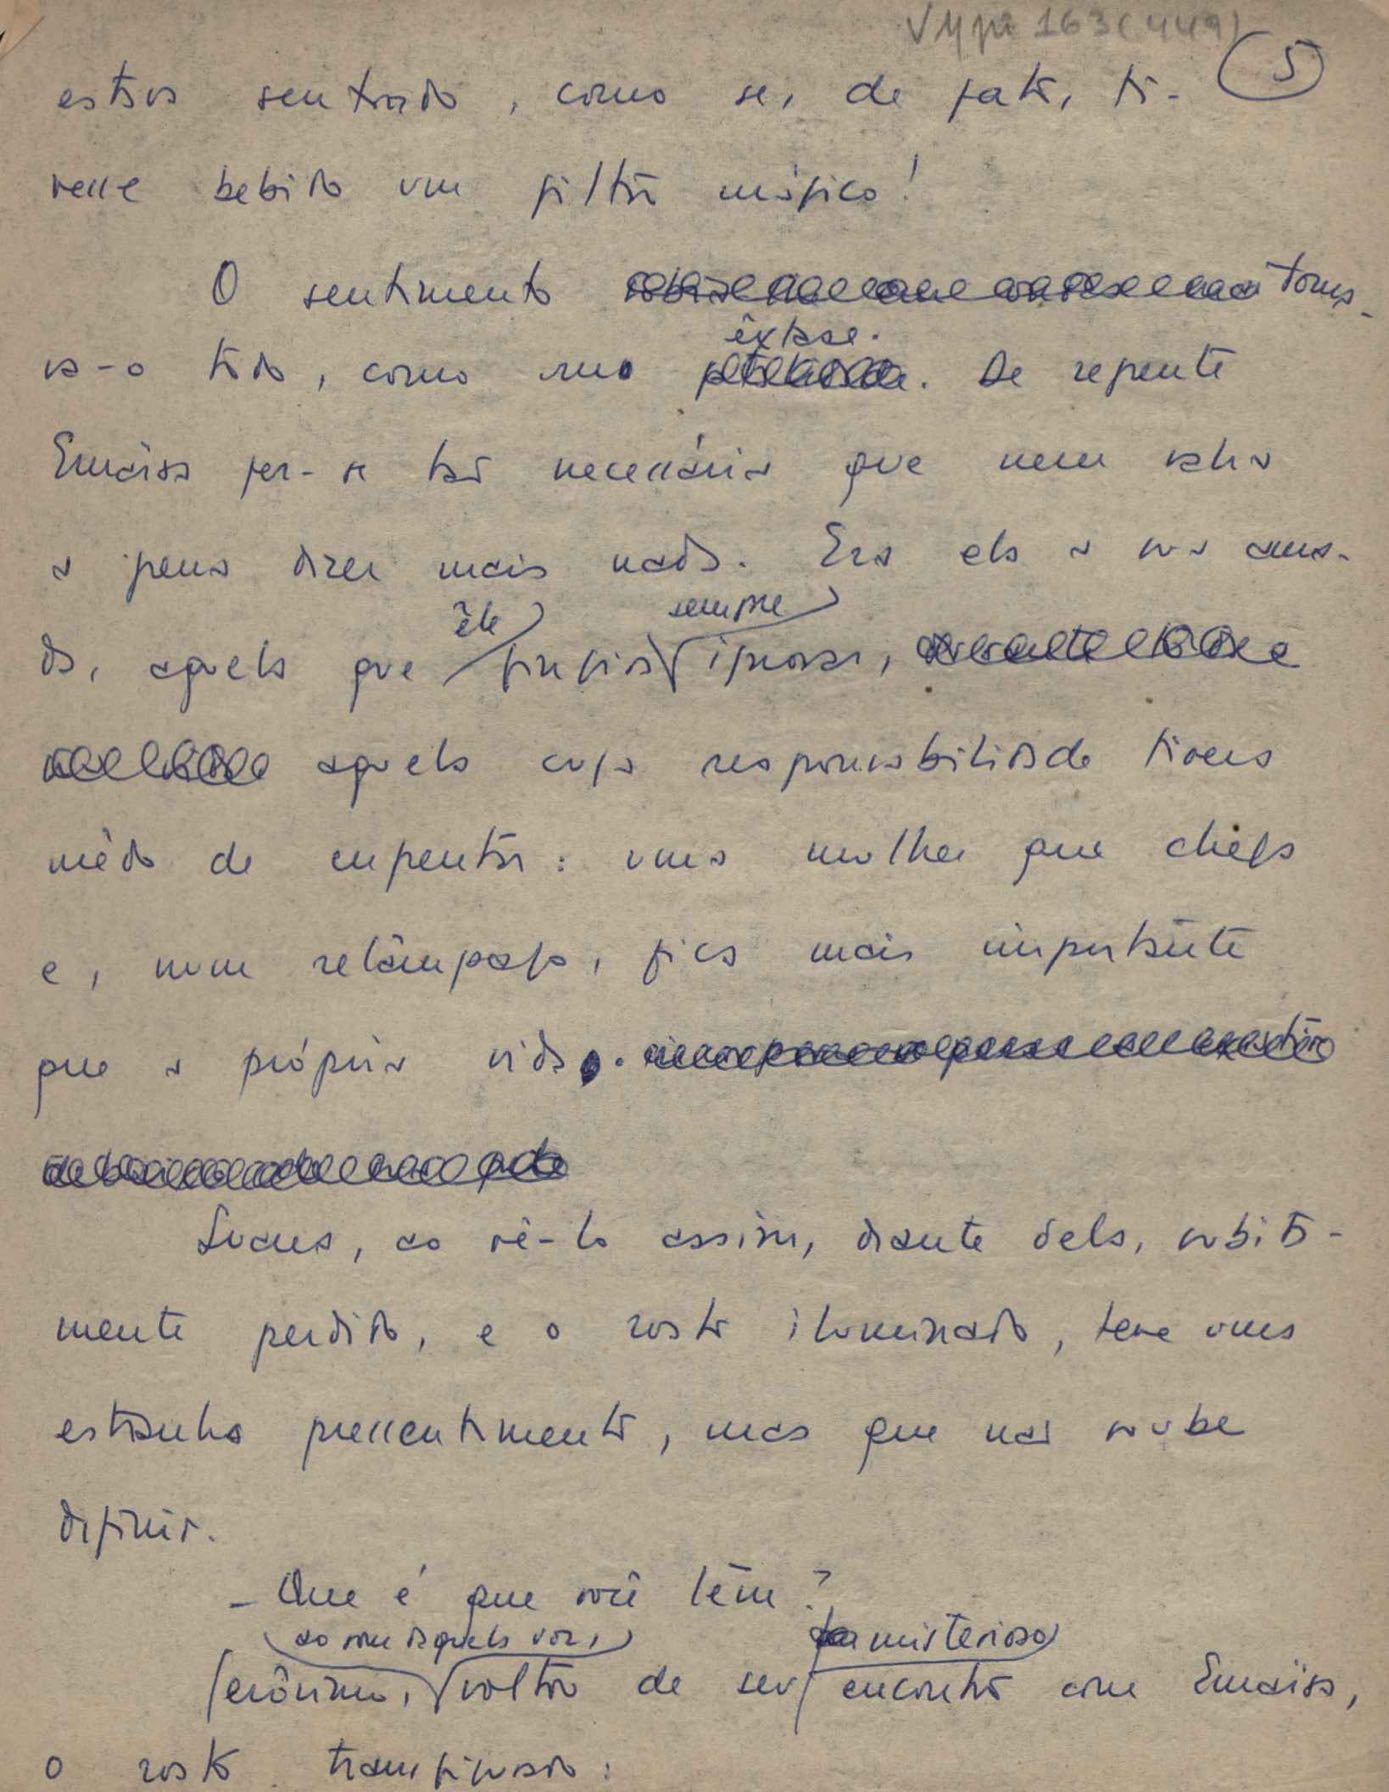 5
estava sentado, como se, de fato, ti-
vesse bebido um filtro mágico!
O sentimento toma-
va-o todo, como num
êxtase.
De repente
fez-se tão necessária que nem valia
a pena dizer mais nada. Era ela a sua ama-
da, aquela que
êle
fingia
sempre
ignorar,
aquela cuja responsabilidade tivera
mêdo de enfrentar: uma mulher que chega
e, num relâmpago, fica mais importante
que a própria vida.
ao vê-lo assim, diante dela, subita-
mente perdido, e o rosto iluminado, teve uma
estranho pressentimento, mas que não soube
difinir.
- Que é que você têm?
ao som daquela voz,
misterioso
Jerônimo, voltou de seu encontro com
o rosto transfigurado: